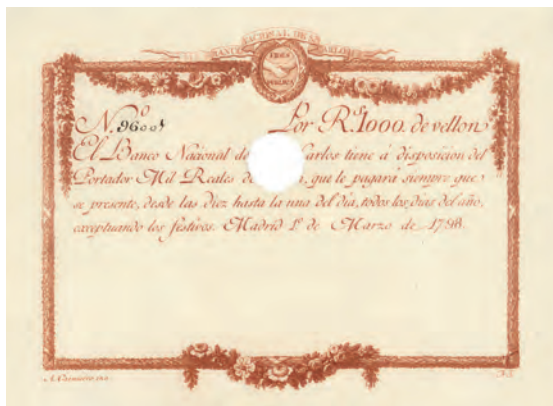 NACIONAL DE S
FIDES PUBLICA
N.º 9600
Por R.s 1000. de vellon
El Banco Nacional de Carlos tiene á disposicion del
Portador Mil Reales de que le pagará siempre que
se presente, desde las diez hasta la una del dia, todos los dias del año,
exceptuando los festivos. Madrid 1º de Marzo de 1798.